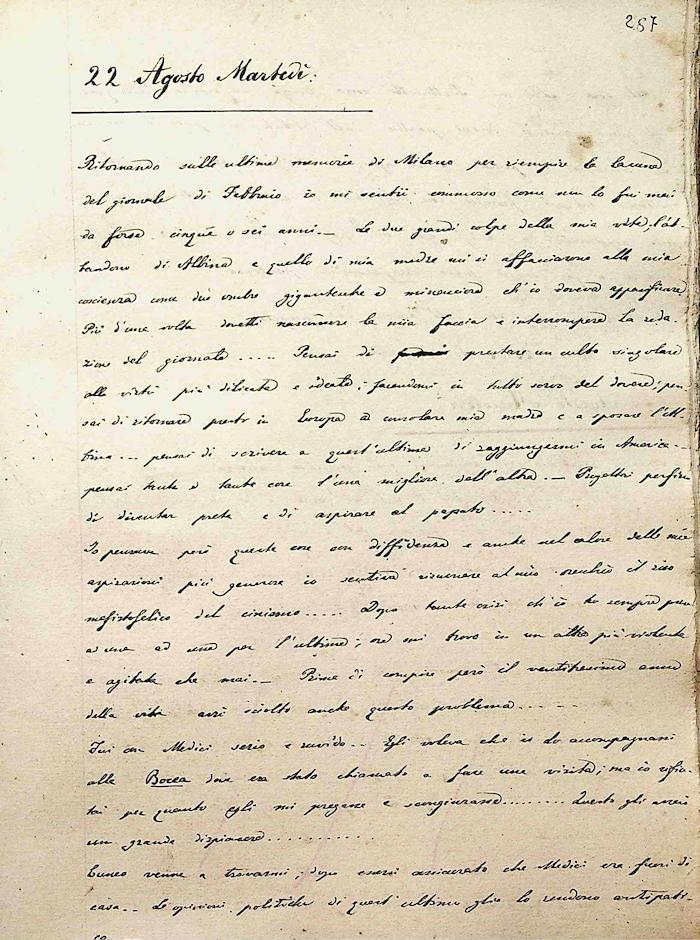 287
22 Agosto Martedì:
Ritornando sulle ultime memorie di Milano per riempire la lacuna
del giornale di Febbraio io mi sentii commosso come non lo fui mai
da forse cinque o sei anni._ Le due grandi colpe della mia vita, l'ab-
bandono di Albina e quello di mia madre mi si affacciarono alla mia
coscienza come due ombre gigantesche e minacciose ch'io doveva appacificare.
Più d'una volta dovetti nascondere la mia faccia e interrompere la reda-
zione del giornale..... Pensai di prestare un culto singolare
alle virtù più dilicate e ideali, facendomi in tutto servo del dovere; pen
sai di ritornare presto in Europa a consolare mia madre e a sposare l'Al-
bina... pensai di scrivere a quest'ultima di raggiungermi in America._
pensai tante e tante cose l'una migliore dell'altra._ Progettai perfino
di diventar prete e di aspirare al papato.....
Io pensava però queste cose con diffidenza e anche nel calore delle mie
aspirazioni più generose io sentiva risuonare al mio orecchio il riso
mefistofelico del cinismo..... Dopo tante crisi ch'io ho sempre prese
ad una ad una per l'ultima; ora mi trovo in un altra più violenta
e agitata che mai._ Prima di compire però il ventitresimo anno
della vita avrò sciolto anche questo problema.....
Fui con Medici serio e ruvido... Egli voleva che io lo accompagnassi
alla Bocca dove era stato chiamato a fare una visita; ma io rifiu-
tai per quanto egli mi pregasse e scongiurasse........ Questo gli arrecò
un grande dispiacere..........
Cuneo venne a trovarmi, dopo essersi assicurato che Medici era fuori di
casa... Le opinioni politiche di quest'ultimo glie lo rendono antipati-
co